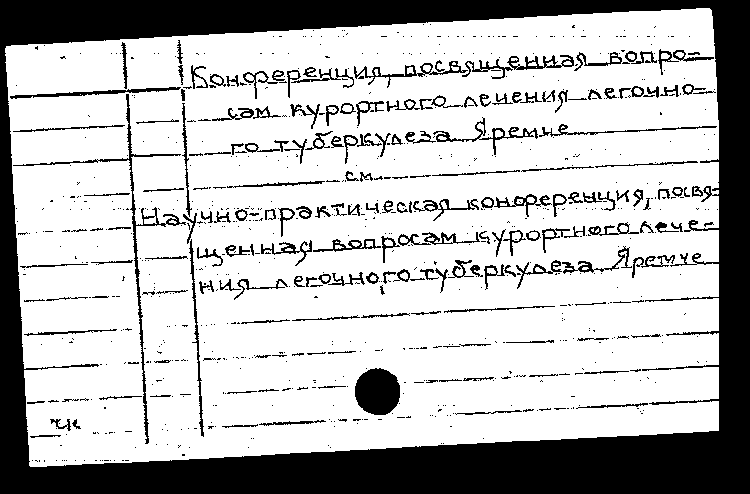 Конференция, посвященная вопро=
сам курортного лечения легочно=
го туберкулеза Яремче
см.
Научно-практическая конференция, посвя=
щенная вопросам курортного лече=
ния легочного туберкулеза Яремче